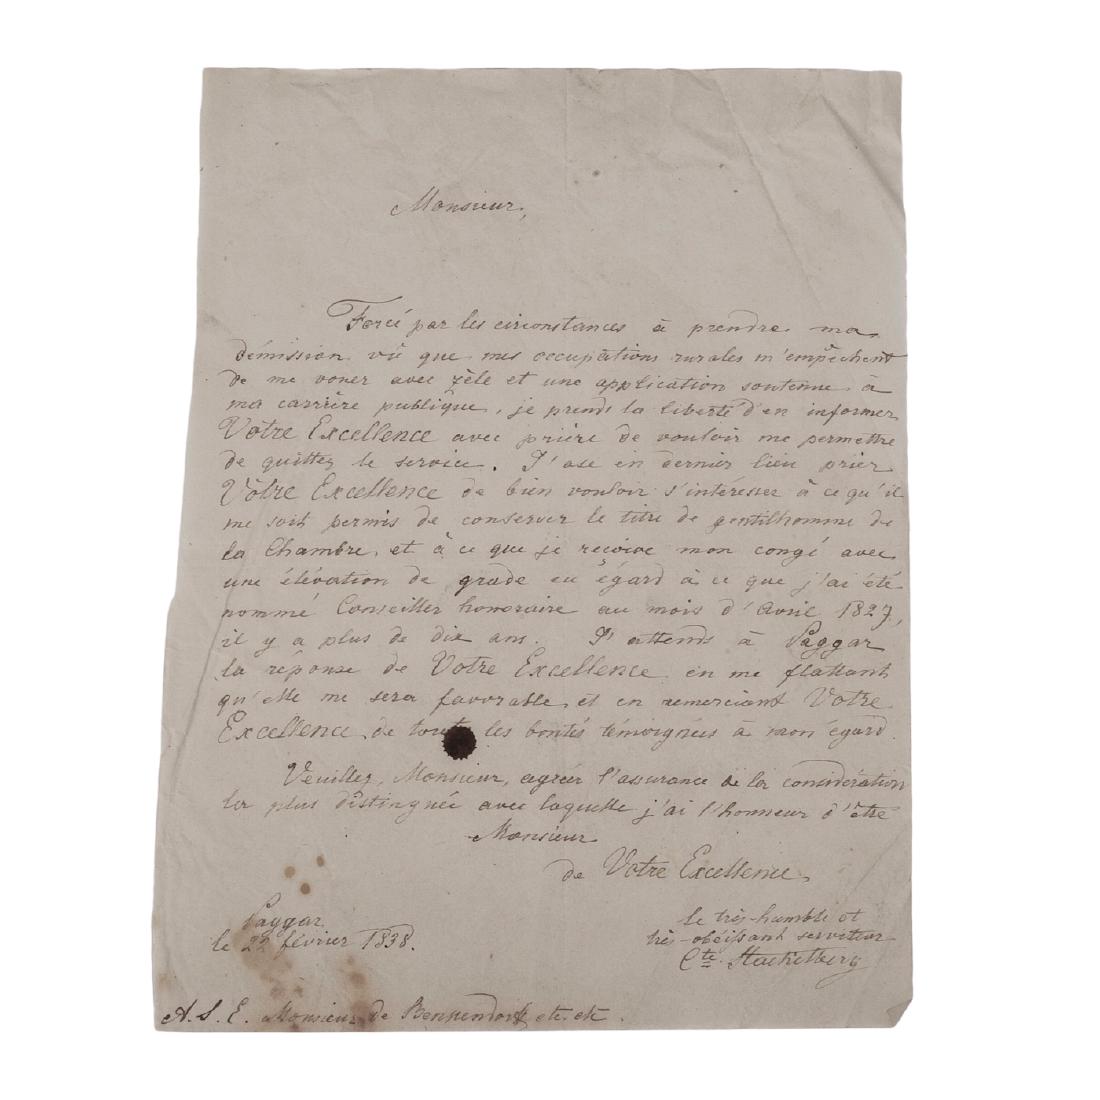 Monsieur,
Forcé par les circonstances à prendre ma
démission vû que mes occupations rurales m'empêchent
de me vouer avec zèle et une application soutenue à
ma carrière publique, je prends la liberté d'en informer
Votre Excellence avec prière de vouloir me permettre
de quitter le service. J'ose en dernier lieu prier
Vôtre Excellence de bien vouloir s'intéresser à ce qu'il
me soit permis de conserver le titre de gentilhomme de
la Chambre, et à ce que je reçoive mon congé avec
une élévation de grade eu égard à ce que j'ai été
nommé Conseiller honoraire au mois d'Avril 1827,
il y a plus de dix ans. J'attends à Paggar
la réponse de Votre Excellence en me flattant
qu'elle me sera favorable, et en remerciant Votre
Excellence de toutes les bontés témoignées à mon égard.
Veuillez, Monsieur, agréer l'assurance de la considération
la plus distinguée avec laquelle j'ai l'honneur d'être
Monsieur
de Votre Excellence,
le très-humble et
très-obéissant serviteur
Cte Stackelberg
Paggar
le février 1838.
A. S. E. Monsieur de Benkendorf etc. etc.